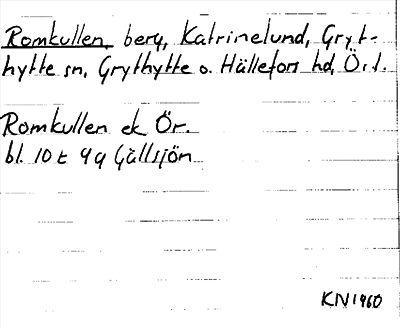 Romkullen, berg, Katrinelund, Gryt-
hytte sn, Grythytte o. Hällefors hd, Ör.l.
Romkullen ek Ör.
bl. 10 E 9 g Gällsjön
KN1960